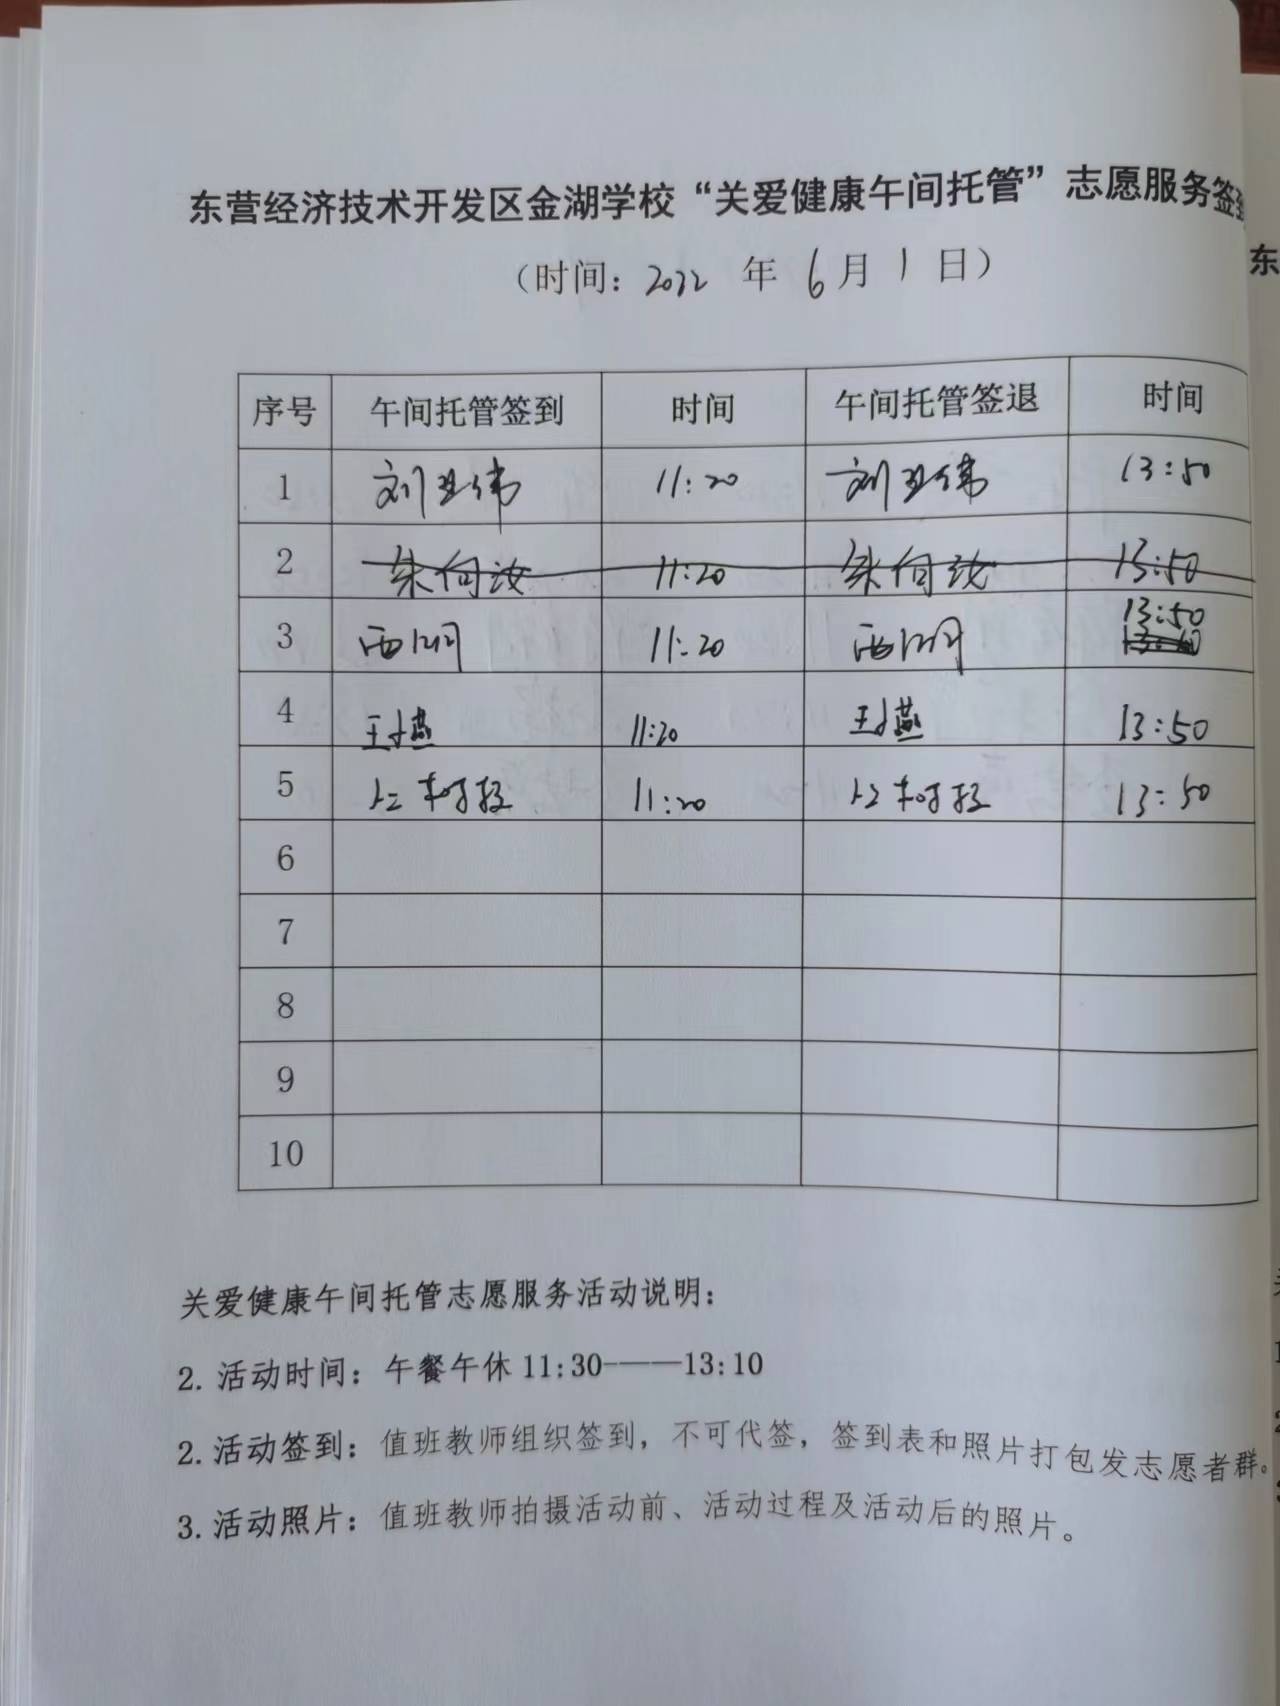 东营经济技术开发区金湖学校“关爱健康午间托管”志愿服务签到
（时间：2022 年 6月 1 日）
东
序号 午间托管签到 时间 午间托管签退 时间
1 刘卫伟 11:20 刘卫伟 13:50
2 朱向汝 11:20 朱向汝 13:50
13:50
3 11:20
4 王燕 11:20 王燕 13:50
5 11:20 13:50
6
7
8
9
10
关爱健康午间托管志愿服务活动说明：
2. 活动时间：午餐午休 11:30-——13:10
2. 活动签到：值班教师组织签到，不可代签，签到表和照片打包发志愿者群。
3. 活动照片：值班教师拍摄活动前、活动过程及活动后的照片。